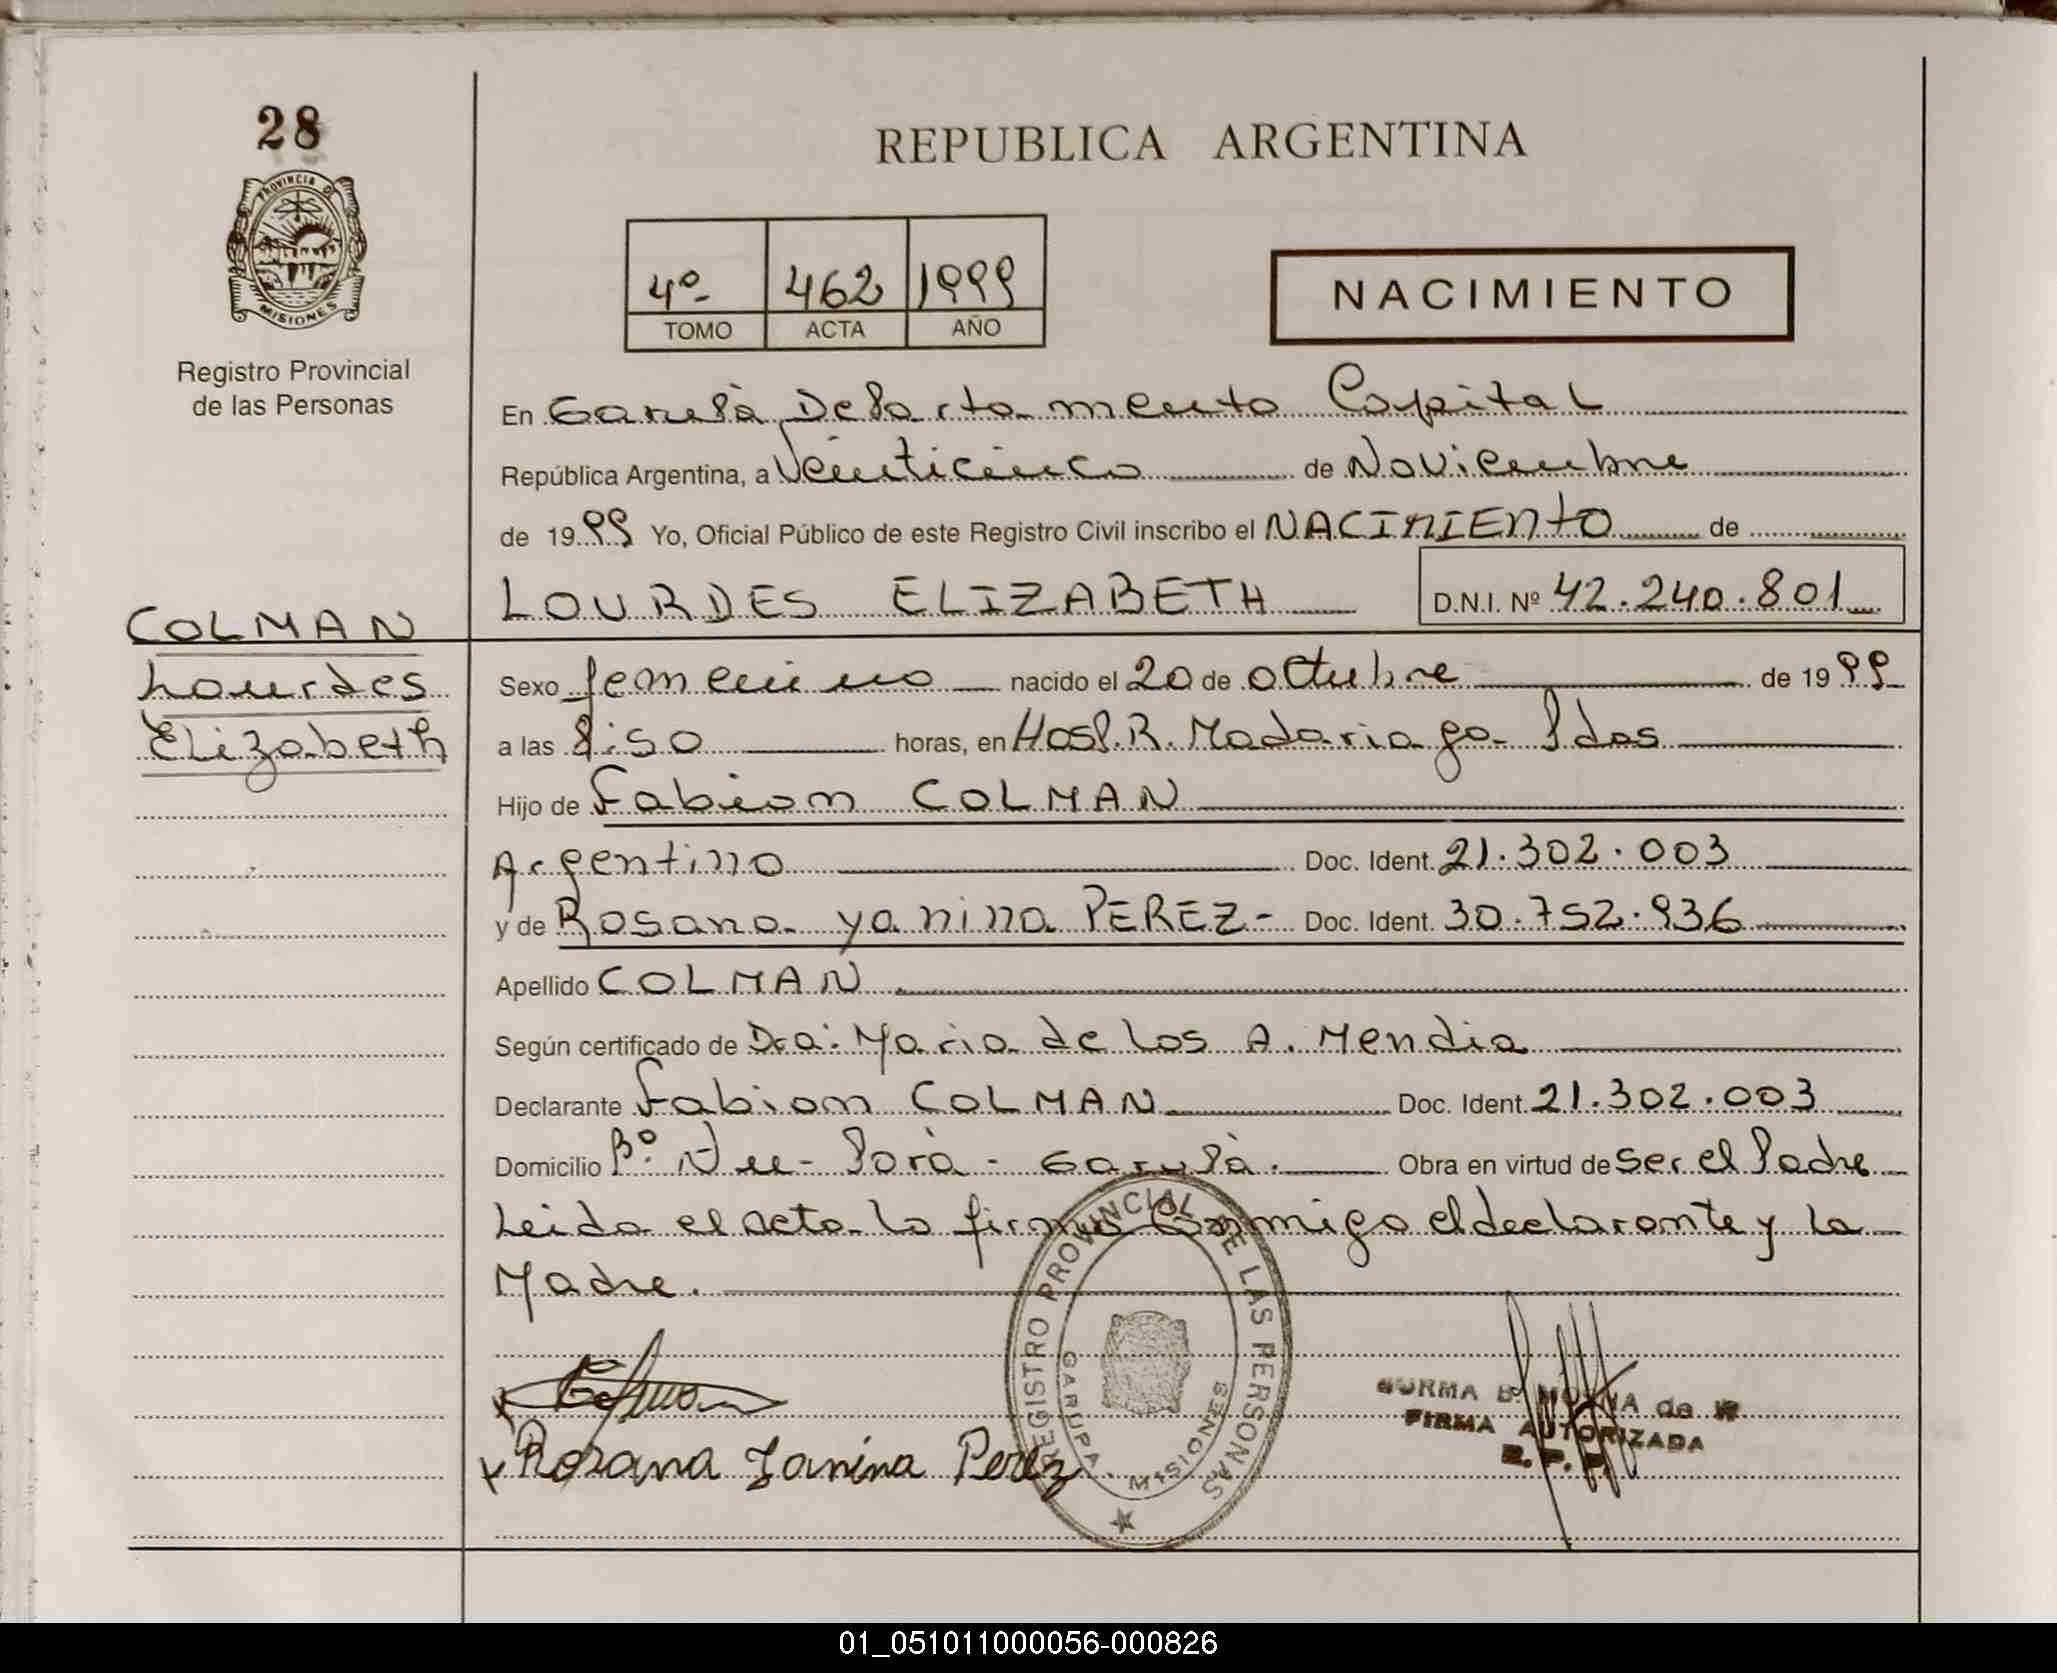 28
PROVINCIA DE
MISIONES
Registro Provincial
de las Personas
REPUBLICA ARGENTINA
4º- 462 1999
TOMO ACTA AÑO
NACIMIENTO
En Garupà Departamento Capital
República Argentina, a Veinticinco de Noviembre
de 1999 Yo, Oficial Público de este Registro Civil inscribo el NACIMIENTO de
LOURDES ELIZABETH D.N.I. Nº 42.240.801
COLMAN
Lourdes
Elizabeth
Sexo femenino nacido el 20 de octubre de 1999
a las 8:50 horas, en Hosp. R. Madariaga- Pdas
Hijo de Fabian COLMAN
Argentino Doc. Ident. 21.302.003
y de Rosana Yanina PEREZ- Doc. Ident. 30.752.936
Apellido COLMAN
Según certificado de Dra: Maria de los A. Mendia
Declarante Fabian COLMAN Doc. Ident. 21.302.003
Domicilio Bº. Ñu- Porà - Garupà. Obra en virtud de ser el Padre
Leida el acta la firma Conmigo el declarante y la
Madre.
REGISTRO PROVINCIAL DE LAS PERSONAS
GARUPA - MISIONES
Rosana Yanina Perez
FIRMA AUTORIZADA
01_051011000056-000826